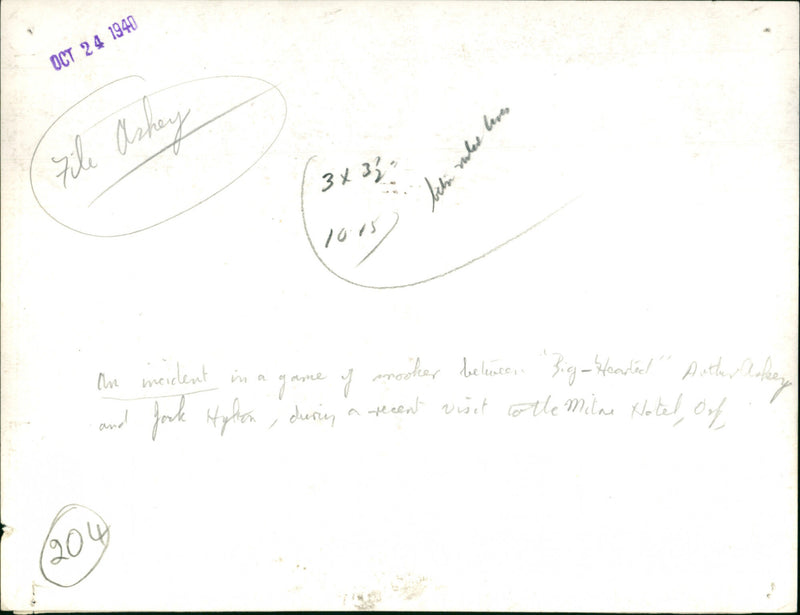 OCT 24 1940
File Askey
3 x 3½"
10.15
An incident in a game of snooker between "Big-Hearted" Arthur Askey
and Jack Hylton, during a recent visit to the Mitre Hotel, Oxf,
204